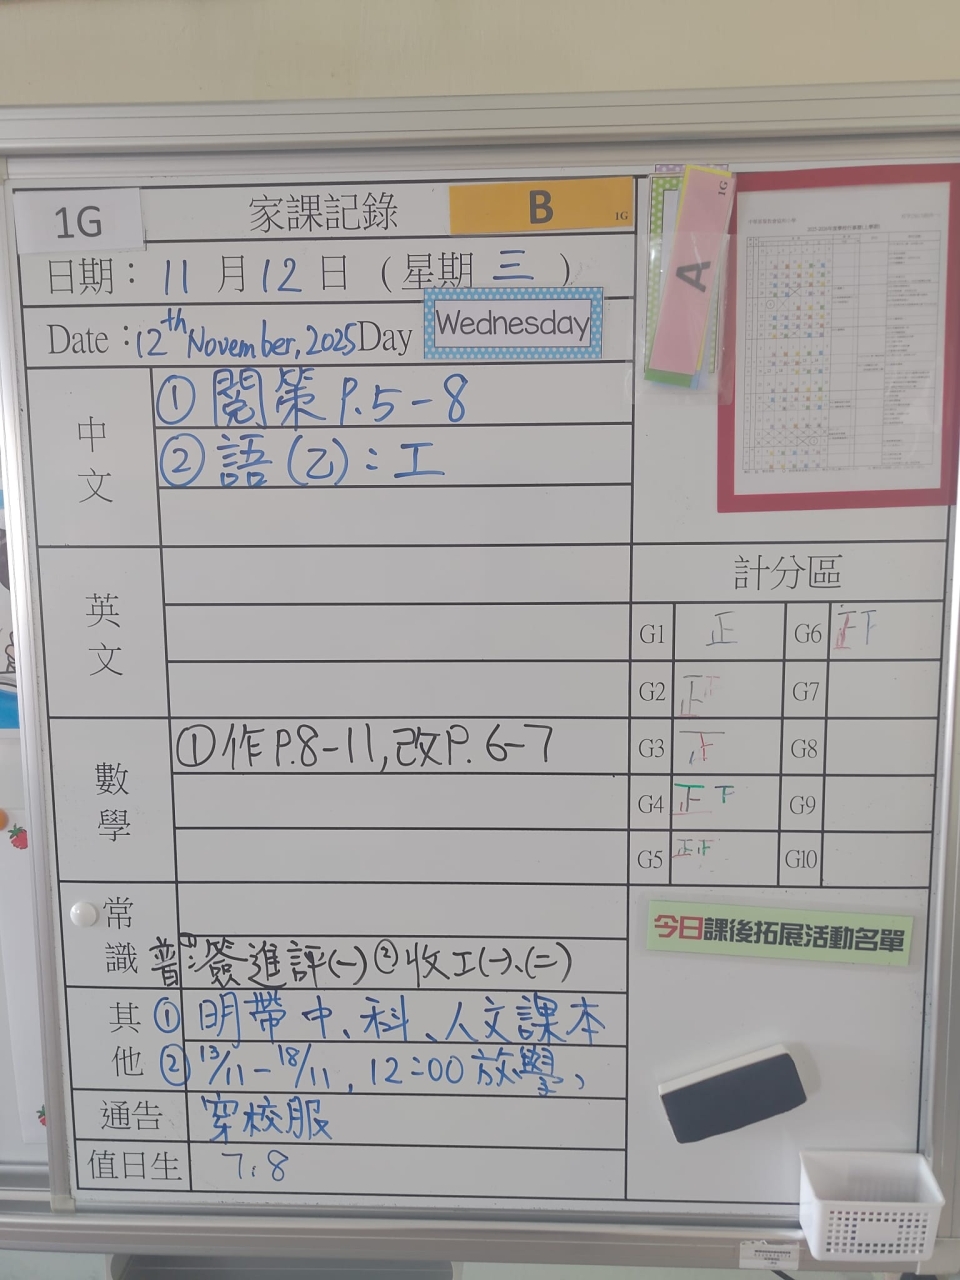 1G
家課記錄
B 1G
日期：11月12日（星期三）
Date：12th November, 2025 Day Wednesday
A
1G
中文
① 閱策 P.5-8
② 語(乙)：工
英文
數學
① 作P.8-11,改P.6-7
常識
普①簽進評(一)②收工(一)、(二)
其他
① 明帶中、科、人文課本
② 13/11-18/11, 12:00放學、
通告
穿校服
值日生
7,8
計分區
G1 正
G2 正
G3
G4 正
G5 正
G6
G7
G8
G9
G10
今日課後拓展活動名單